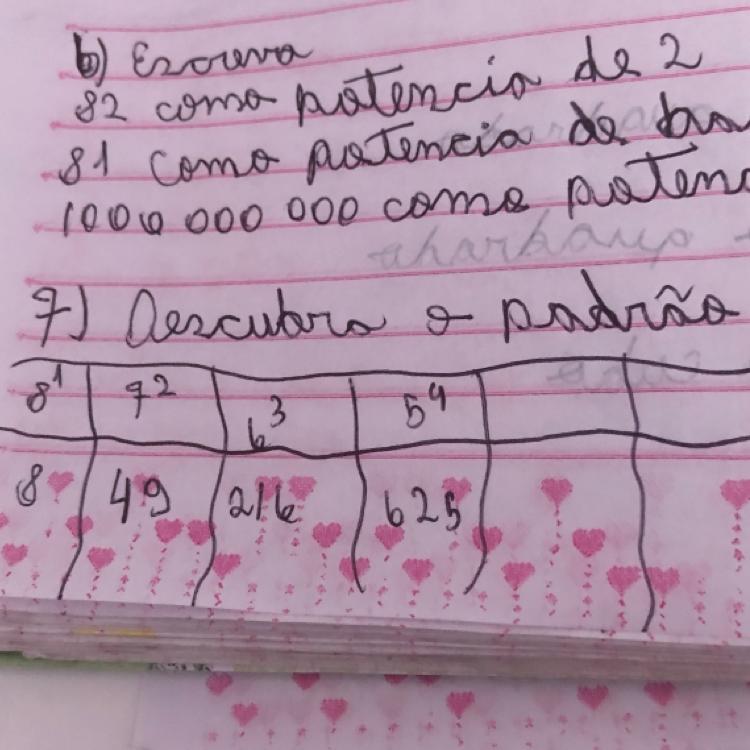 b) Escreva
82 como potencia de 2
81 como potencia de ba
1000 000 000 como potenc
7) Descubra o padrão
8¹ 7² 6³ 5⁴
8 49 216 625